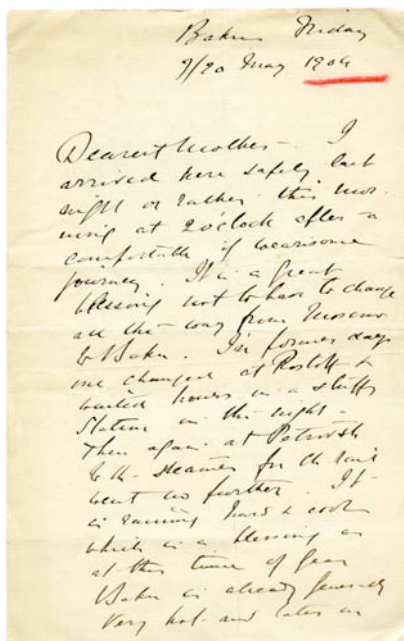 Baku Friday
7/20 May 1904
Dearest Mother - I
arrived here safely last
night or rather this mor-
ning at 2 o'clock after a
comfortable if wearisome
journey. It is a great
blessing not to have to change
all the way from Moscow
to Baku. In former days
one changed at Rostoff &
waited hours in a stuffy
station in the night -
then again at Petrovsk
to the steamer for the rail
went no further. It
is raining hard & cool
which is a blessing as
at this time of year
Baku is already generally
very hot and later on